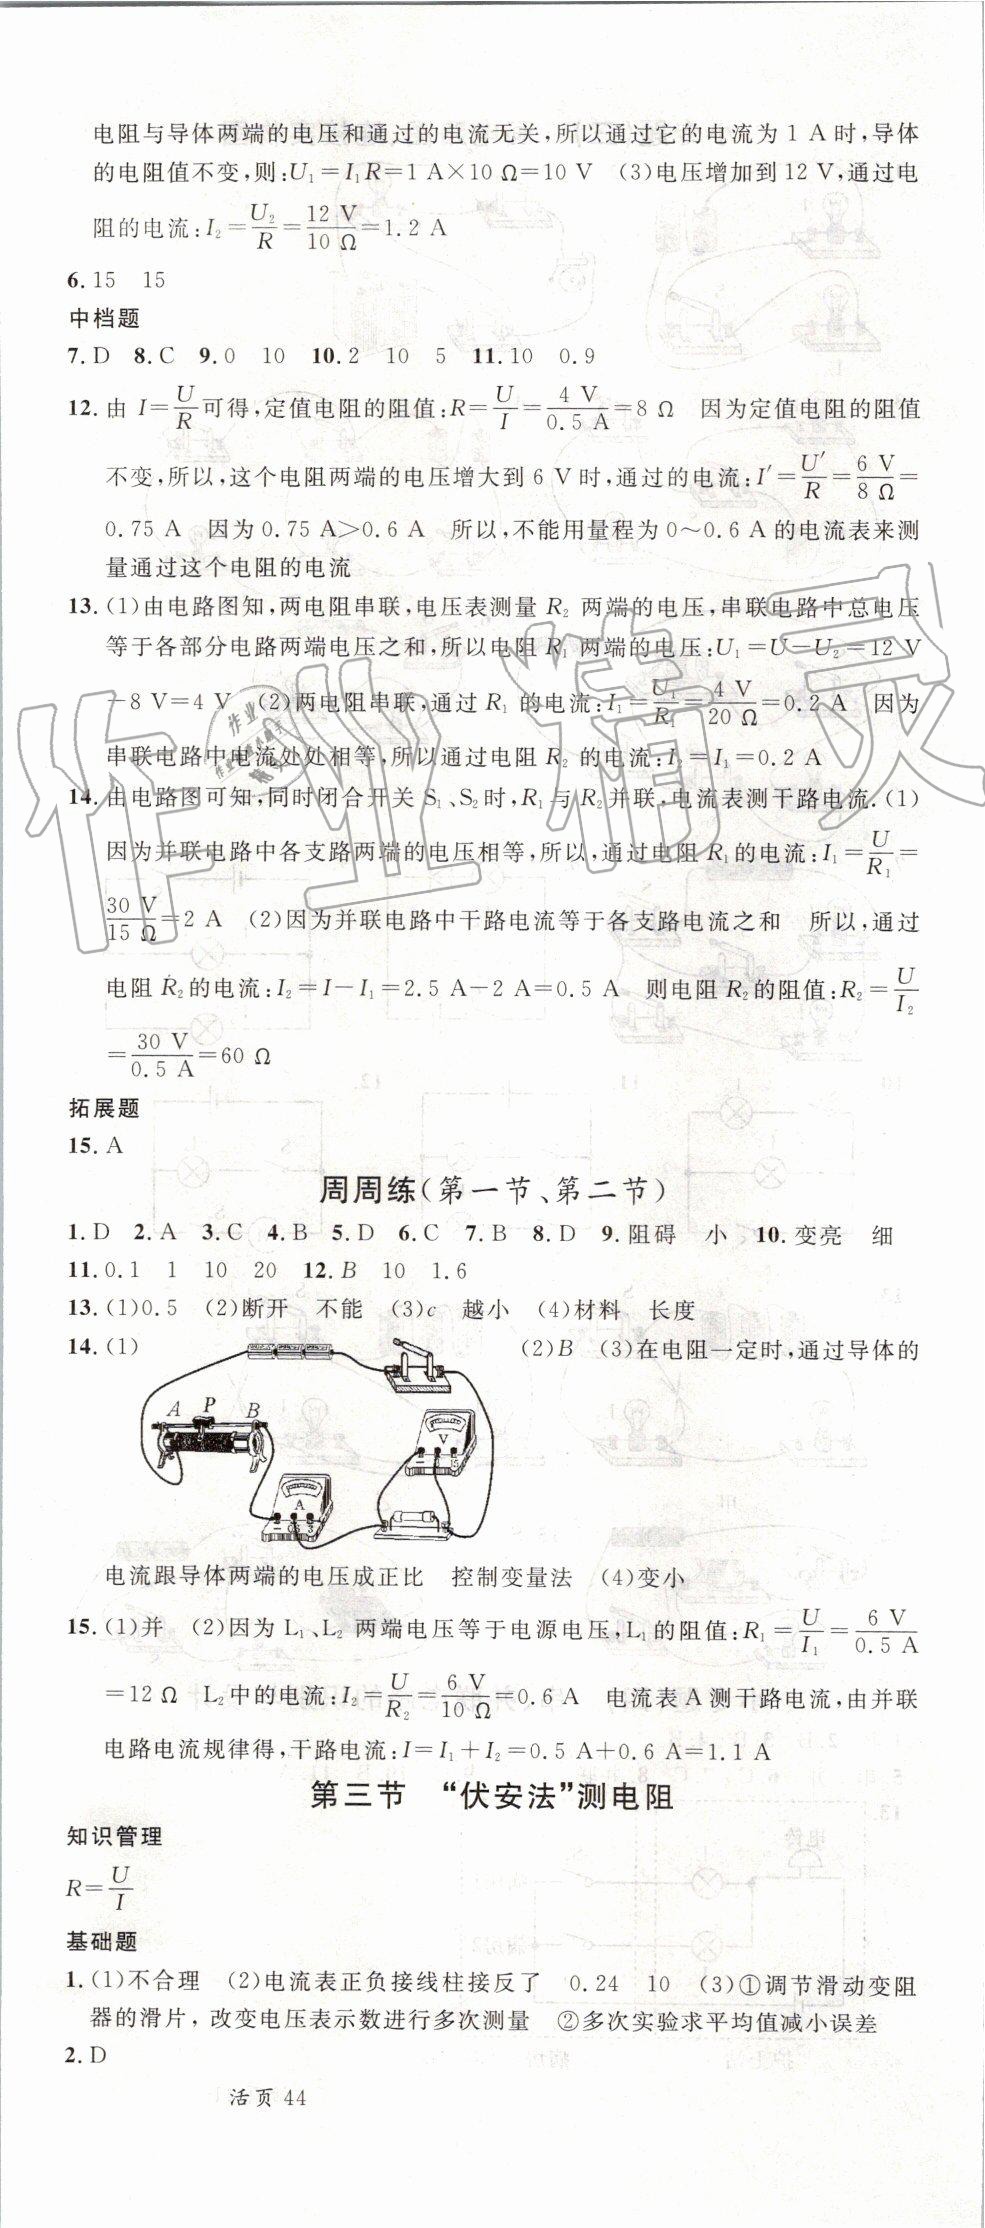 电阻与导体两端的电压和通过的电流无关,所以通过它的电流为 1 A 时,导体
的电阻值不变,则:U₁=I₁R=1 A×10 Ω=10 V (3)电压增加到 12 V,通过电
阻的电流:I₂=U₂/R=12 V/10 Ω=1.2 A
6.15 15
中档题
7.D 8.C 9.0 10 10.2 10 5 11.10 0.9
12.由 I=U/R可得,定值电阻的阻值:R=U/I=4 V/0.5 A=8 Ω 因为定值电阻的阻值
不变,所以,这个电阻两端的电压增大到 6 V 时,通过的电流:I′=U′/R=6 V/8 Ω=
0.75 A 因为 0.75 A>0.6 A 所以,不能用量程为 0～0.6 A 的电流表来测
量通过这个电阻的电流
13.(1)由电路图知,两电阻串联,电压表测量 R₂ 两端的电压,串联电路中总电压
等于各部分电路两端电压之和,所以电阻 R₁ 两端的电压:U₁=U-U₂=12 V
-8 V=4 V (2)两电阻串联,通过 R₁ 的电流:I₁=U₁/R₁=4 V/20 Ω=0.2 A 因为
串联电路中电流处处相等,所以通过电阻 R₂ 的电流:I₂=I₁=0.2 A
14.由电路图可知,同时闭合开关 S₁、S₂时,R₁与 R₂并联,电流表测干路电流.(1)
因为并联电路中各支路两端的电压相等,所以,通过电阻 R₁的电流:I₁=U/R₁=
30 V/15 Ω=2 A (2)因为并联电路中干路电流等于各支路电流之和 所以,通过
电阻 R₂的电流:I₂=I-I₁=2.5 A-2 A=0.5 A 则电阻 R₂的阻值:R₂=U/I₂
=30 V/0.5 A=60 Ω
拓展题
15.A
周周练(第一节、第二节)
1.D 2.A 3.C 4.B 5.D 6.C 7.B 8.D 9.阻碍 小 10.变亮 细
11.0.1 1 10 20 12.B 10 1.6
13.(1)0.5 (2)断开 不能 (3)c 越小 (4)材料 长度
14.(1) (2)B (3)在电阻一定时,通过导体的
A P B
V
A
电流跟导体两端的电压成正比 控制变量法 (4)变小
15.(1)并 (2)因为 L₁、L₂ 两端电压等于电源电压,L₁的阻值:R₁=U/I₁=6 V/0.5 A
=12 Ω L₂中的电流:I₂=U/R₂=6 V/10 Ω=0.6 A 电流表 A 测干路电流,由并联
电路电流规律得,干路电流:I=I₁+I₂=0.5 A+0.6 A=1.1 A
第三节 “伏安法”测电阻
知识管理
R=U/I
基础题
1.(1)不合理 (2)电流表正负接线柱接反了 0.24 10 (3)①调节滑动变阻
器的滑片,改变电压表示数进行多次测量 ②多次实验求平均值减小误差
2.D
活页 44
作业精灵